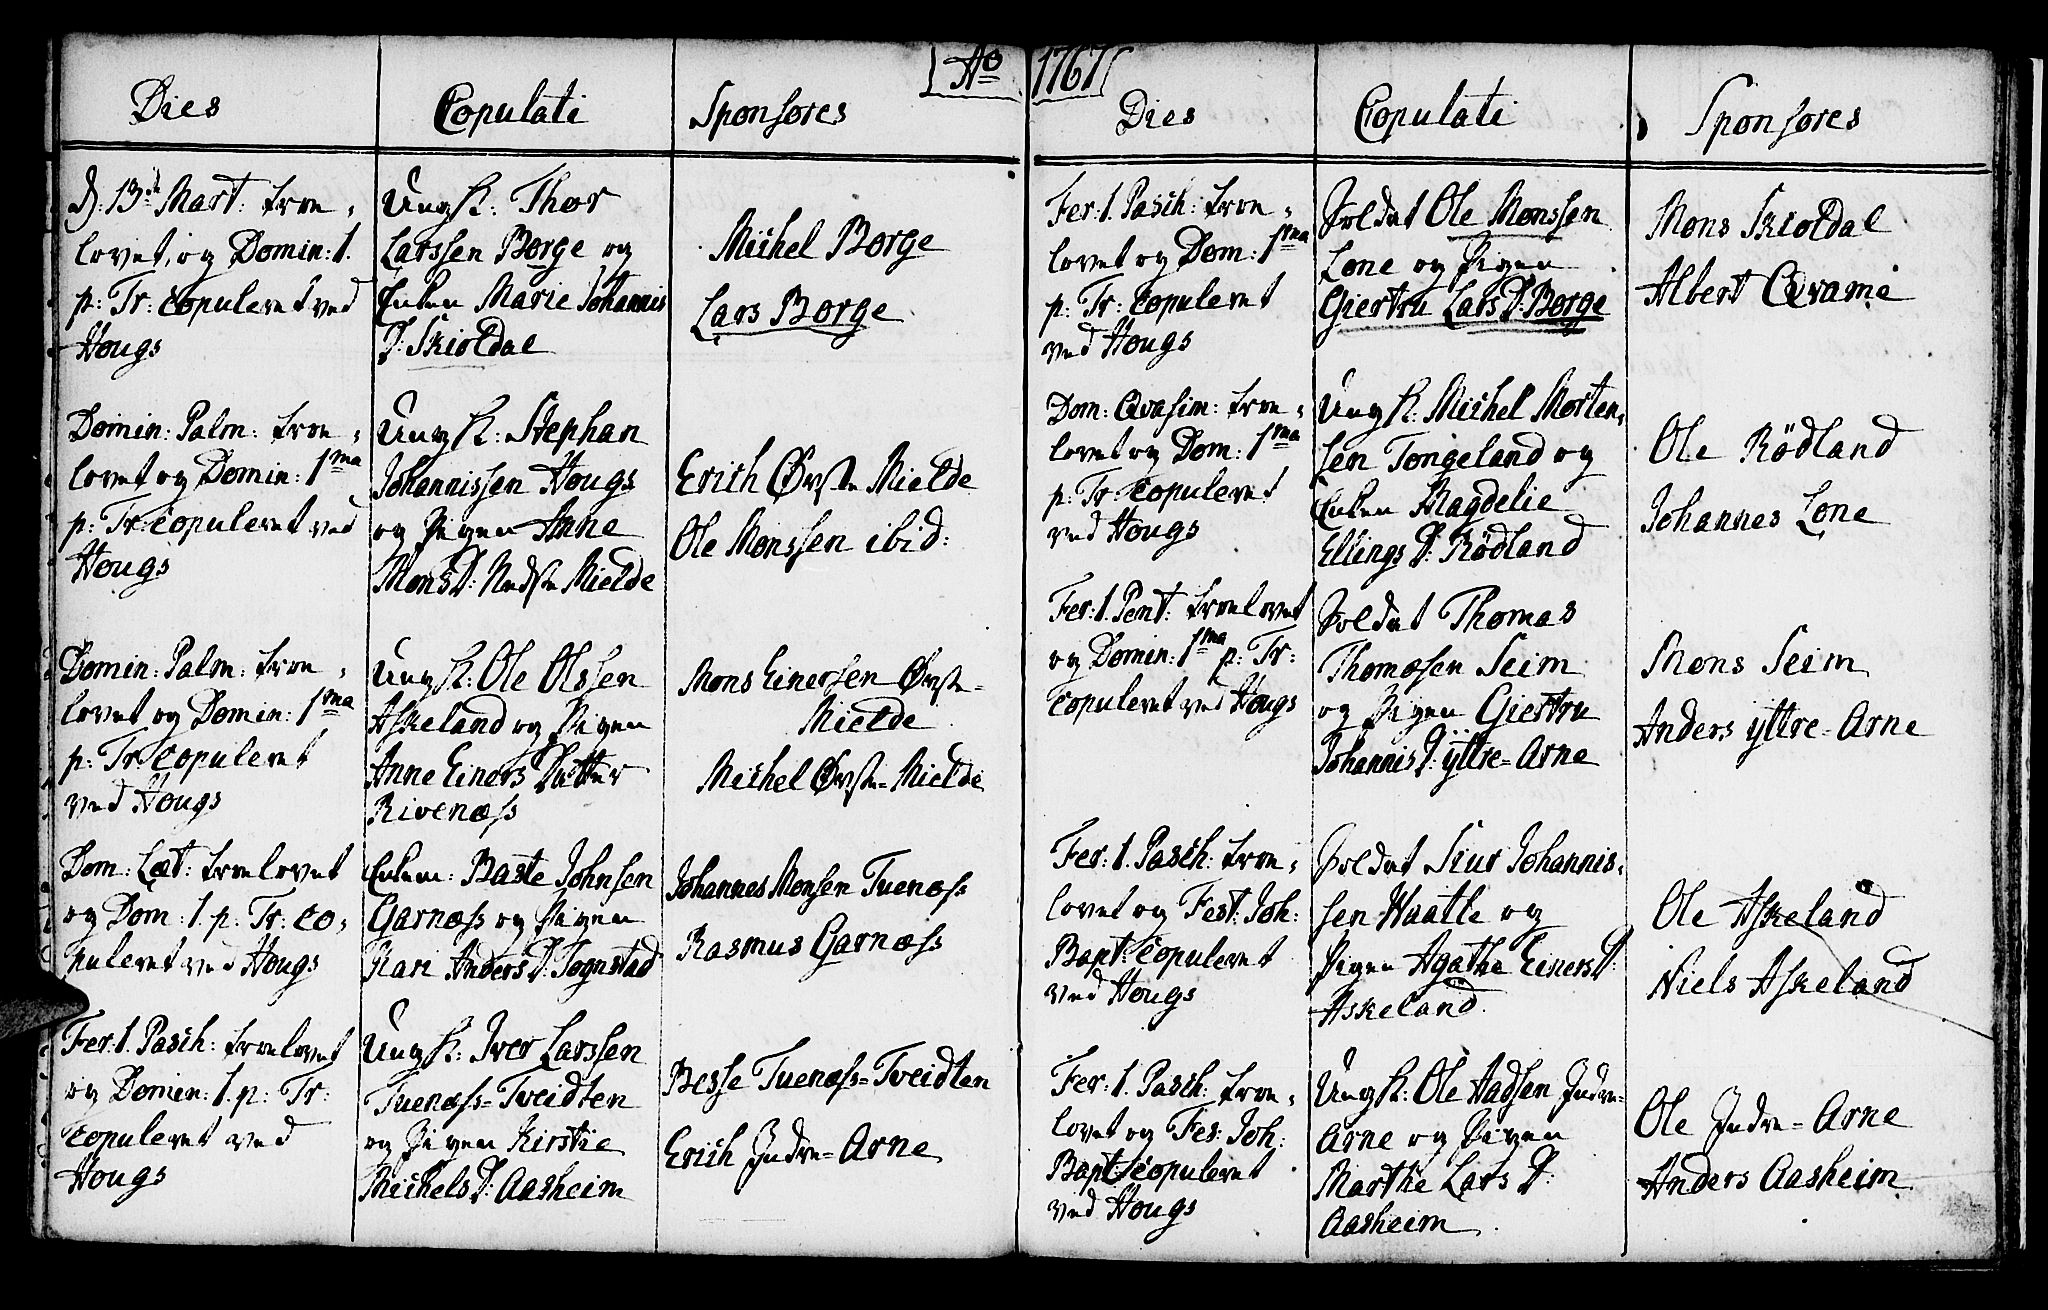 Ao 1767
Dies
Copulati
Sponsores
d: 13de Mart: troe-
lovet, og Domin: 1.
p: Tr: copuleret ved
Hougs
UngK: Thor
Larssen Borge og
Enken Marie Johannis
D. Skioldal
Michel Borge
Lars Borge
Domin: Palm: troe-
lovet og Domin: 1ma
p: Tr: copuleret ved
Hougs
UngK: Stephan
Johannissen Hougs
og Pigen Anne
MonsD: Nedste Mielde
Erich Øvste Mielde
Ole Monssen ibid:
Domin: Palm: troe-
lovet og Domin: 1ma
p: Tr copuleret
ved Hougs
UngK: Ole Olssen
Askeland og Pigen
Anne Einers Datter
Rivenæss
Mons Einersen Øvste-
Mielde
Michel Øvste-Mielde
Dom: Læt: troelovet
og Dom: 1. p: Tr: co-
puleret ved Hougs
Enkem: Baste Johnsen
Garnæss og Pigen
Kari Anders D. Togstad
Johannes Monsen Tuenæss
Rasmus Garnæss
Fer: 1. Pasch: troelovet
og Domin: 1. p: Tr:
copuleret ved
Hougs
UngK: Iver Larssen
Tuenæss-Tveidten
og Pigen Kirstie
Michels D: Aasheim
Besse Tuenæss-Tveidten
Erich Indre-Arne
Dies
Copulati
Sponsores
Fer: 1. Pasch: troe-
lovet og Dom: 1ma
p: Tr: copuleret
ved Hougs
Soldat Ole Monssen
Lone og Pigen
Giertru Lars D. Borge
Mons Skioldal
Albert Qvame
Dom: Qvasim: troe-
lovet og Dom: 1ma
p: Tr: copuleret
ved Hougs
UngK: Michel Morten-
sen Tongeland og
Enken Magdelie
Ellings D: Rödland
Ole Rödland
Johannes Lone
Fer: 1. Pent: troelovet
og Domin: 1ma p: Tr:
copuleret ved Hougs
Soldat Thomas
Thomæsen Seim
og Pigen Giertru
JohannisD: ÿttre-Arne
Mons Seim
Anders ÿttre-Arne
Fer: 1. Pasch: troe-
lovet og Fest: Joh:
Bapt: copuleret
ved Hougs
Soldat Siur Johannis-
sen Haatle og
Pigen Agathe EinersD:
Askeland
Ole Askeland
Niels Askeland
Fer: 1. Pasch: troe-
lovet og Fes: Joh:
Bapt: copuleret
ved Hougs
UngK: Ole Aadsen Indre-
Arne og Pigen
Marthe Lars D:
Aasheim
Ole Indre-Arne
Anders Aasheim